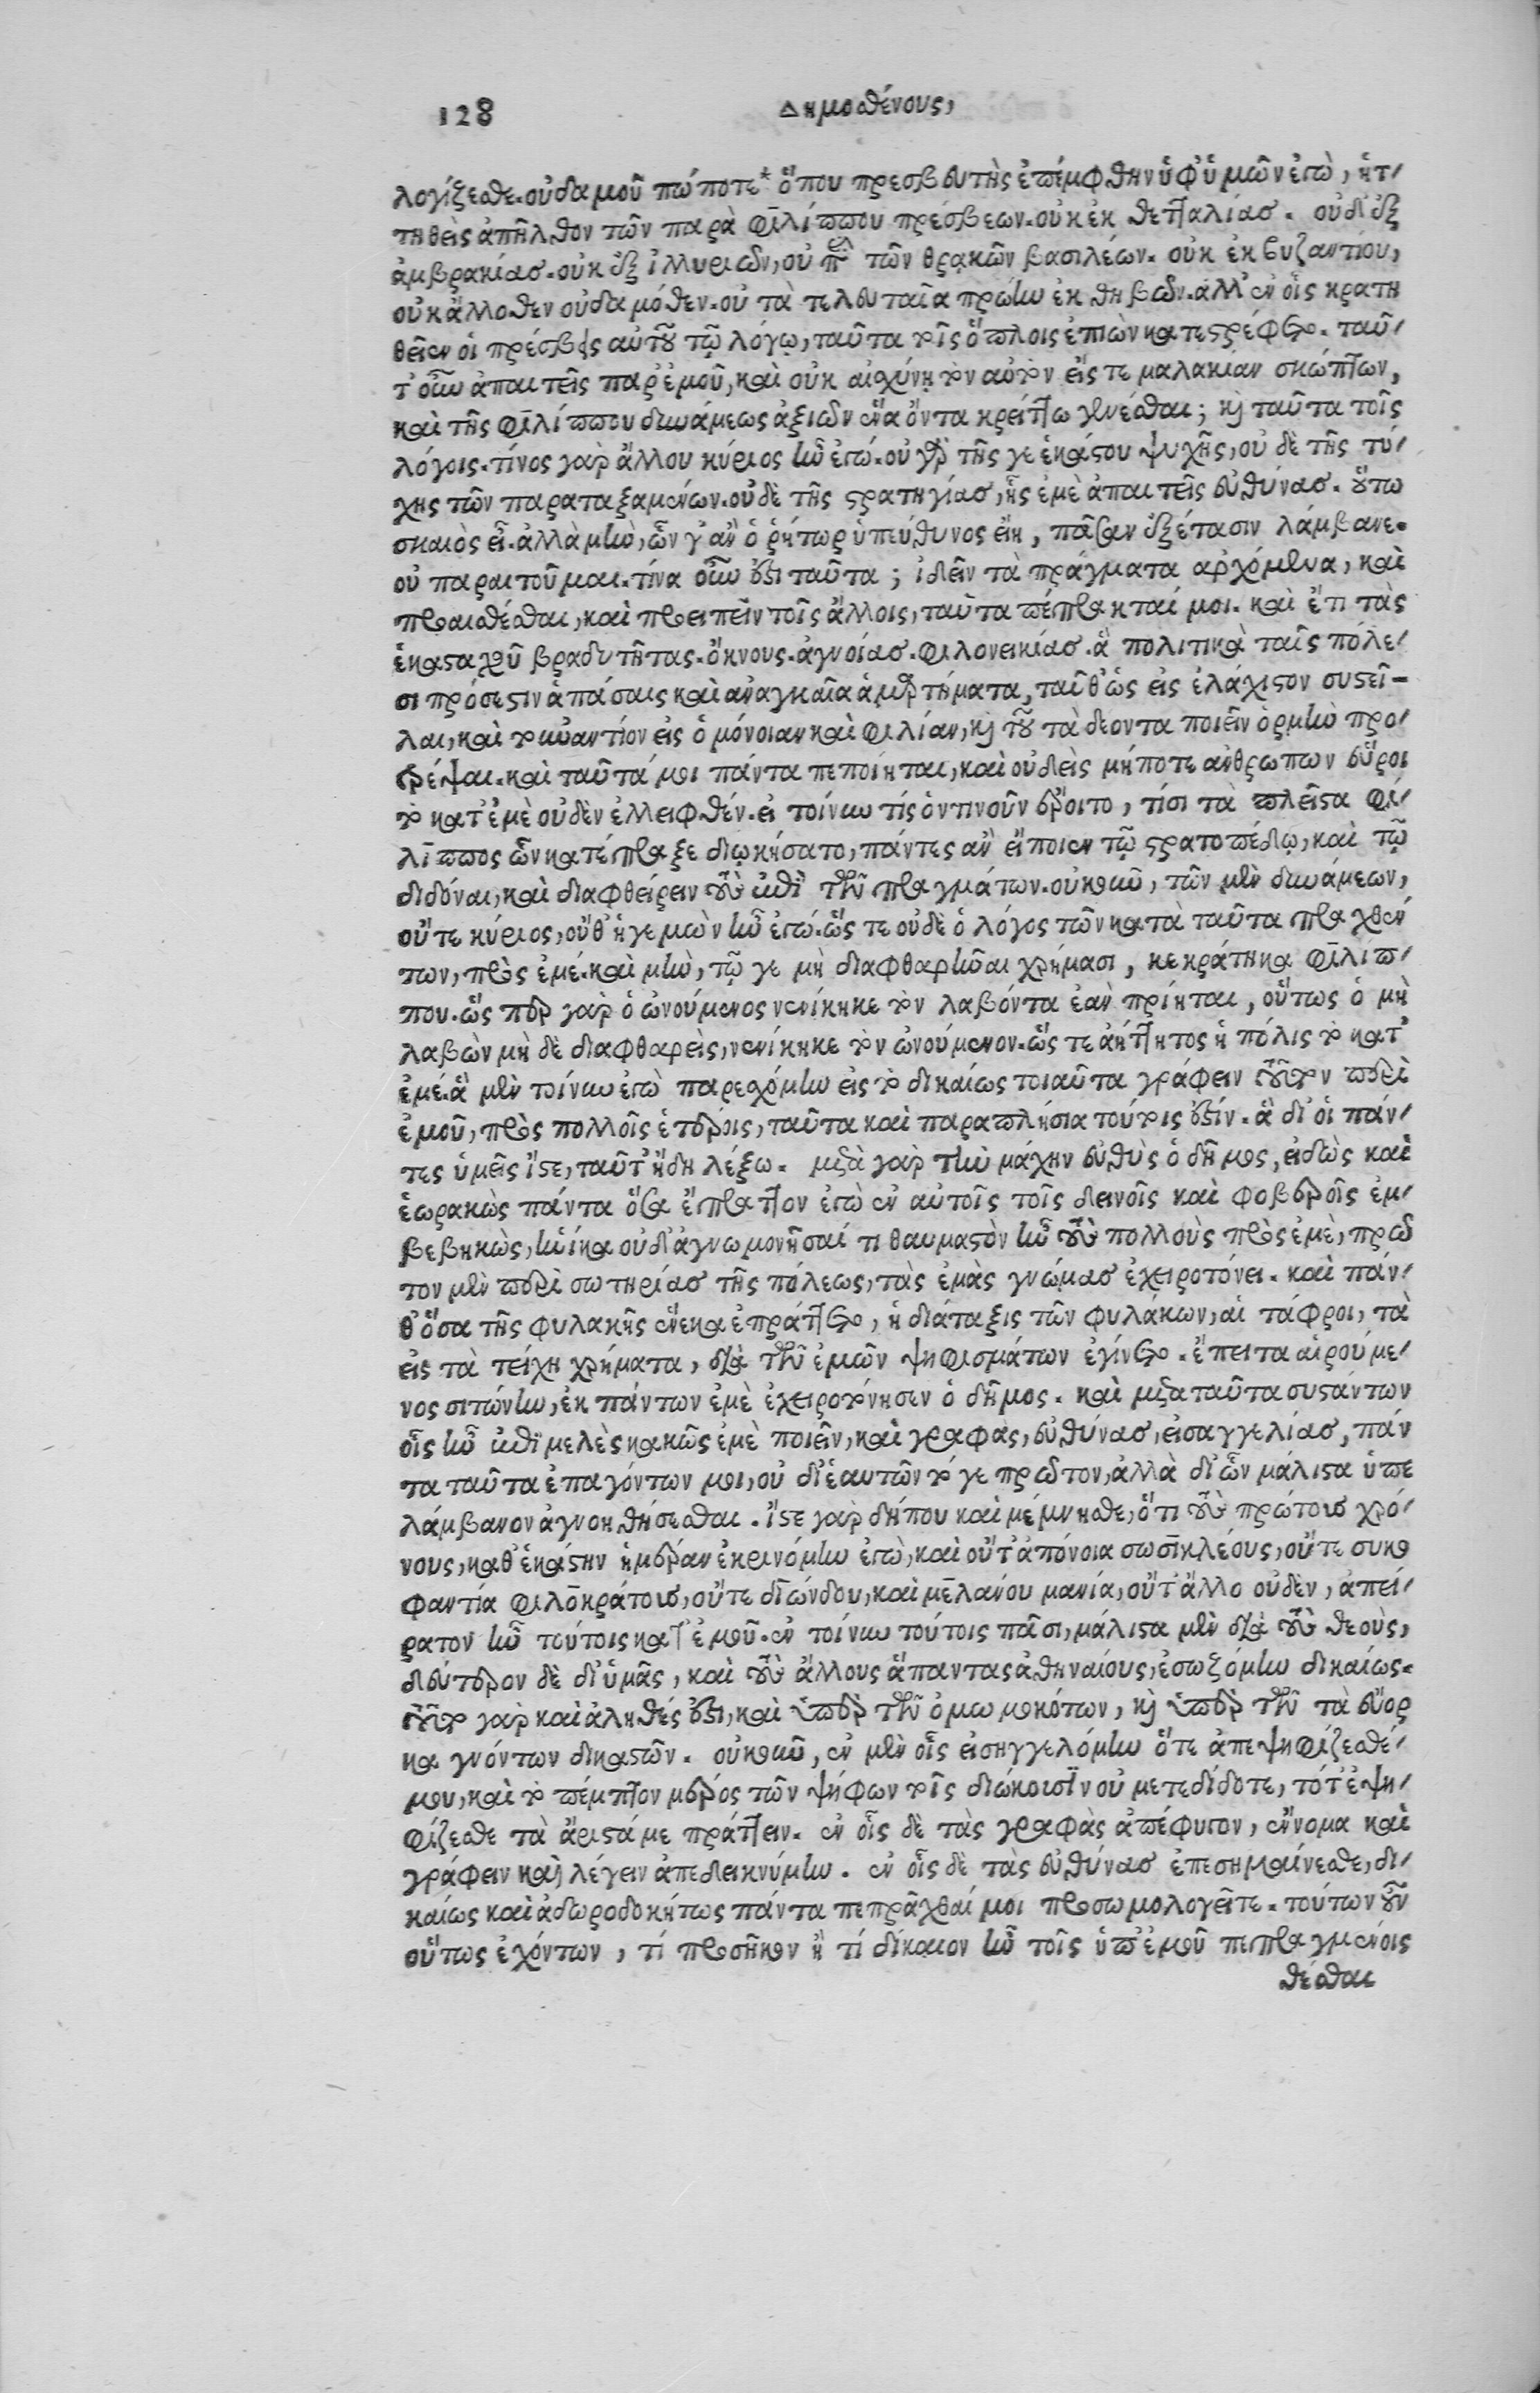 128 Δημοσθένους,
λογίζεσθε. οὐδαμοῦ πώποτε* ὅπου πρεσβευτὴς ἐπέμφθην ὑφ' ὑμῶν ἐγὼ, ἡτ-
τηθεὶς ἀπῆλθον τῶν παρὰ φιλίππου πρέσβεων. οὐκ ἐκ θετταλίας. οὐδ' ἐξ
ἀμβρακίας. οὐκ ἐξ ἰλλυριῶν, οὐ παρὰ τῶν θρακῶν βασιλέων. οὐκ ἐκ βυζαντίου,
οὐκ ἄλλοθεν οὐδαμόθεν. οὐ τὰ τελευταῖα πρώην ἐκ θηβῶν. ἀλλ' ἐν οἷς κρατη
θεῖεν οἱ πρέσβεις αὐτοῦ τῷ λόγῳ, ταῦτα τοῖς ὅπλοις ἐπιὼν κατεστρέφετο. ταῦ-
τ' οὖν ἀπαιτεῖς παρ' ἐμοῦ, καὶ οὐκ αἰσχύνῃ τὸν αὐτὸν εἴς τε μαλακίαν σκώπτων,
καὶ τῆς φιλίππου δυνάμεως ἀξιῶν ἕνα ὄντα κρείττω γενέσθαι; καὶ ταῦτα τοῖς
λόγοις. τίνος γὰρ ἄλλου κύριος ἦν ἐγώ. οὐ γὰρ τῆς γε ἑκάστου ψυχῆς, οὐ δὲ τῆς τύ-
χης τῶν παραταξαμένων. οὐδὲ τῆς στρατηγίας, ἧς ἐμὲ ἀπαιτεῖς εὐθύνας. οὕτω
σκαιὸς εἶ. ἀλλὰ μὴν, ὧν γ' ἂν ὁ ῥήτωρ ὑπεύθυνος εἴη, πᾶσαν ἐξέτασιν λάμβανε.
οὐ παραιτοῦμαι. τίνα οὖν ἐστι ταῦτα; ἰδεῖν τὰ πράγματα ἀρχόμενα, καὶ
προαισθέσθαι, καὶ προειπεῖν τοῖς ἄλλοις, ταῦτα πέπρακταί μοι. καὶ ἔτι τὰς
ἑκασταχοῦ βραδυτῆτας. ὄκνους. ἀγνοίας. φιλονεικίας. ἃ πολιτικὰ ταῖς πόλε-
σι πρόσεστιν ἁπάσαις καὶ ἀναγκαῖα ἁμαρτήματα, ταῦθ' ὡς εἰς ἐλάχιστον συστεῖ-
λαι, καὶ τοὐναντίον εἰς ὁμόνοιαν καὶ φιλίαν, καὶ τοῦ τὰ δεοντα ποιεῖν ὁρμὴν προ-
τρέψαι. καὶ ταῦτά μοι πάντα πεποίηται, καὶ οὐδεὶς μήποτε ἀνθρώπων εὕροι
τὸ κατ' ἐμὲ οὐδὲν ἐλλειφθέν. εἰ τοίνυν τίς ὁντινοῦν ἔροιτο, τίσι τὰ πλεῖστα φί-
λιππος ὧν κατέπραξε διῳκήσατο, πάντες ἂν εἴποιεν τῷ στρατοπέδῳ, καὶ τῷ
διδόναι, καὶ διαφθείρειν τοὺς ἐπὶ τῶν πραγμάτων. οὐκοῦν, τῶν μὲν δυνάμεων,
οὔτε κύριος, οὔθ' ἡγεμὼν ἦν ἐγώ. ὥς τε οὐδὲ ὁ λόγος τῶν κατὰ ταῦτα πραχθέν
των, πρὸς ἐμέ. καὶ μὴν, τῷ γε μὴ διαφθαρῆναι χρήμασι, κεκράτηκα φιλίπ-
που. ὥς περ γὰρ ὁ ὠνούμενος νενίκηκε τὸν λαβόντα ἐὰν πρίηται, οὕτως ὁ μὴ
λαβὼν μὴ δὲ διαφθαρεὶς, νενίκηκε τὸν ὠνούμενον. ὥς τε ἀήττητος ἡ πόλις τὸ κατ'
ἐμέ. ἃ μὲν τοίνυν ἐγὼ παρεσχόμην εἰς τὸ δικαίως τοιαῦτα γράφειν τοῦτον περὶ
ἐμοῦ, πρὸς πολλοῖς ἑτέροις, ταῦτα καὶ παραπλήσια τούτοις ἐστίν. ἃ δ' οἱ πάν-
τες ὑμεῖς ἴστε, ταῦτ' ἤδη λέξω. μετὰ γὰρ τὴν μάχην εὐθὺς ὁ δῆμος, εἰδὼς καὶ
ἑωρακὼς πάντα ὅσα ἔπραττον ἐγὼ ἐν αὐτοῖς τοῖς δεινοῖς καὶ φοβεροῖς ἐμ-
βεβηκὼς, ἡνίκα οὐδ' ἀγνωμονῆσαί τι θαυμαστὸν ἦν τοὺς πολλοὺς πρὸς ἐμὲ, πρῶ
τον μὲν περὶ σωτηρίας τῆς πόλεως, τὰς ἐμὰς γνώμας ἐχειροτόνει. καὶ πάν-
θ' ὅσα τῆς φυλακῆς ἕνεκα ἐπράττετο, ἡ διάταξις τῶν φυλάκων, αἱ τάφροι, τὰ
εἰς τὰ τείχη χρήματα, διὰ τῶν ἐμῶν ψηφισμάτων ἐγίνετο. ἔπειτα αἱρούμε-
νος σιτώνην, ἐκ πάντων ἐμὲ ἐχειροτόνησεν ὁ δῆμος. καὶ μετα ταῦτα συστάντων
οἷς ἦν ἐπιμελὲς κακῶς ἐμὲ ποιεῖν, καὶ γραφὰς, εὐθύνας, εἰσαγγελίας, πάν
τα ταῦτα ἐπαγόντων μοι, οὐ δι' ἑαυτῶν τό γε πρῶτον, ἀλλὰ δι' ὧν μάλιστα ὑπε
λάμβανον ἀγνοηθήσεσθαι. ἴστε γὰρ δήπου καὶ μέμνησθε, ὅτι τοὺς πρώτους χρό-
νους, καθ' ἑκάστην ἡμέραν ἐκρινόμην ἐγὼ, καὶ οὔτ' ἀπόνοια σωσικλέους, οὔτε συκο
φαντία φιλοκράτους, οὔτε διώνδου, καὶ μελάνου μανία, οὔτ' ἄλλο οὐδὲν, ἀπεί-
ρατον ἦν τούτοις κατ' ἐμοῦ. ἐν τοίνυν τούτοις πᾶσι, μάλιστα μὲν διὰ τοὺς θεοὺς,
δεύτερον δὲ δι' ὑμᾶς, καὶ τοὺς ἄλλους ἅπαντας ἀθηναίους, ἐσωζόμην δικαίως.
τοῦτο γὰρ καὶ ἀληθές ἐστι, καὶ ὑπὲρ τῶν ὀμωμοκότων, καὶ ὑπὲρ τῶν τὰ εὔορ
κα γνόντων δικαστῶν. οὐκοῦν, ἐν μὲν οἷς εἰσηγγελόμην ὅτε ἀπεψηφίζεσθέ-
μου, καὶ τὸ πέμπτον μέρος τῶν ψήφων τοῖς διώκουσιν οὐ μετεδίδοτε, τότ' ἐψη-
φίζεσθε τὰ ἄριστά με πράττειν. ἐν οἷς δὲ τὰς γραφὰς ἀπέφυγον, ἔννομα καὶ
γράφειν καὶ λέγειν ἀπεδεικνύμην. ἐν οἷς δὲ τὰς εὐθύνας ἐπεσημαίνεσθε, δι-
καίως καὶ ἀδωροδοκήτως πάντα πεπρᾶχθαί μοι προσωμολογεῖτε. τούτων οὖν
οὕτως ἐχόντων, τί προσῆκον ἢ τί δίκαιον ἦν τοῖς ὑπ' ἐμοῦ πεπραγμένοις
θέσθαι